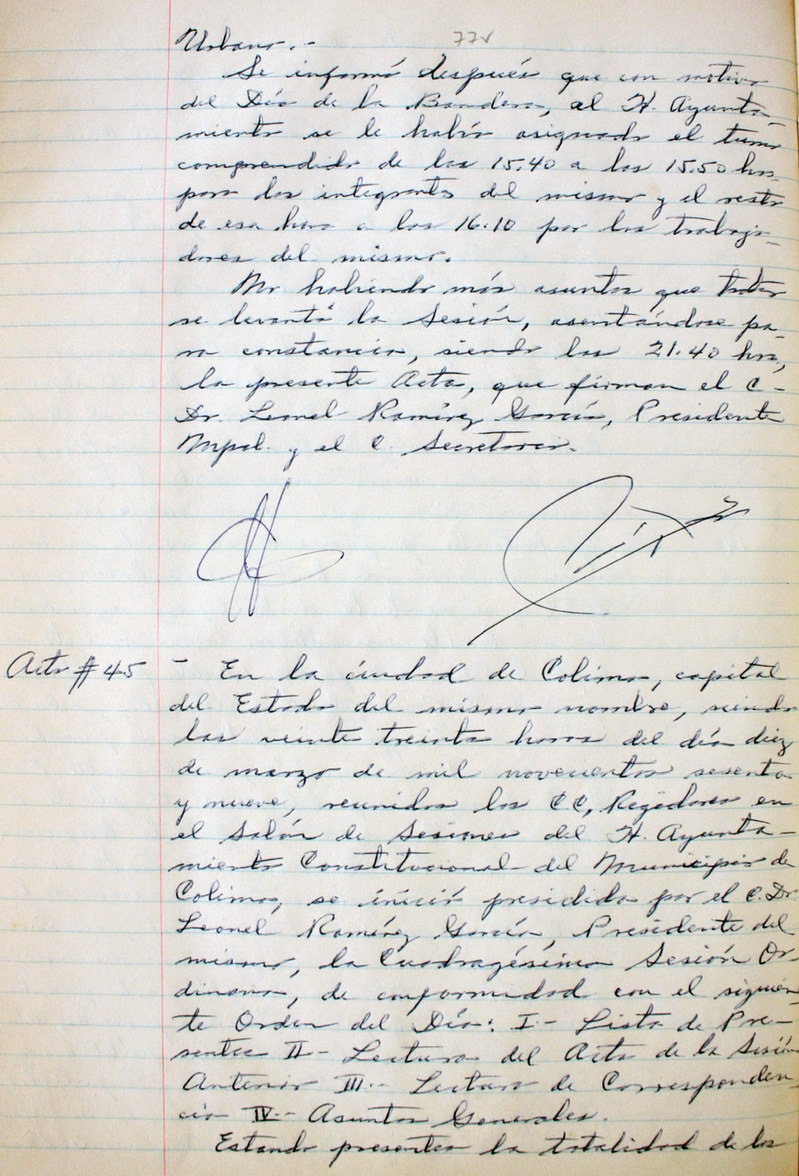 77v
Urbano.-
Se informó después que con motivo
del Día de la Bandera, al H. Ayunta-
miento se le había asignado el turno
comprendido de las 15.40 a las 15.50 hrs.
para los integrantes del mismo y el resto
de esa hora a las 16.10 por los trabaja-
dores del mismo.
No habiendo más asuntos que tratar
se levantó la Sesión, asentándose pa-
ra constancia, siendo las 21.40 hrs,
la presente Acta, que firman el C-
Dr. Leonel Ramírez García, Presidente
Mpal. y el C. Secretario.
Acta # 45
- En la ciudad de Colima, capital
del Estado del mismo nombre, siendo
las veinte treinta horas del día diez
de marzo de mil novecientos sesenta
y nueve, reunidos los CC, Regidores en
el Salón de Sesiones del H. Ayunta-
miento Constitucional del Municipio de
Colima, se inició presidida por el C. Dr
Leonel Ramírez García, Presidente del
mismo, la Cuadragésima Sesión Or-
dinaria, de conformidad con el siguien-
te Orden del Día: I.- Lista de Pre-
sentes II- Lectura del Acta de la Sesión
Anterior III.- Lectura de Corresponden-
cia IV.- Asuntos Generales.
Estando presentes la totalidad de los